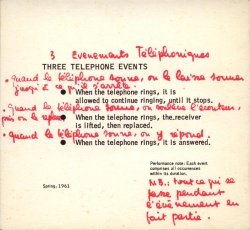 3 Evenements Téléphoniques
THREE TELEPHONE EVENTS
• Quand le téléphone sonne, on le laisse sonner
jusqu'à ce qu'il s'arrête.
● When the telephone rings, it is
allowed to continue ringing, until it stops.
• Quand le téléphone sonne, on soulève l'écouteur,
puis on le replace
● When the telephone rings, the receiver
is lifted, then replaced.
• Quand le téléphone sonne, on y répond.
● When the telephone rings, it is answered.
Performance note: Each event
comprises all occurrences
within its duration.
Spring, 1961
N.B.: tout ce qui se
passe pendant
l'événement en
fait partie.